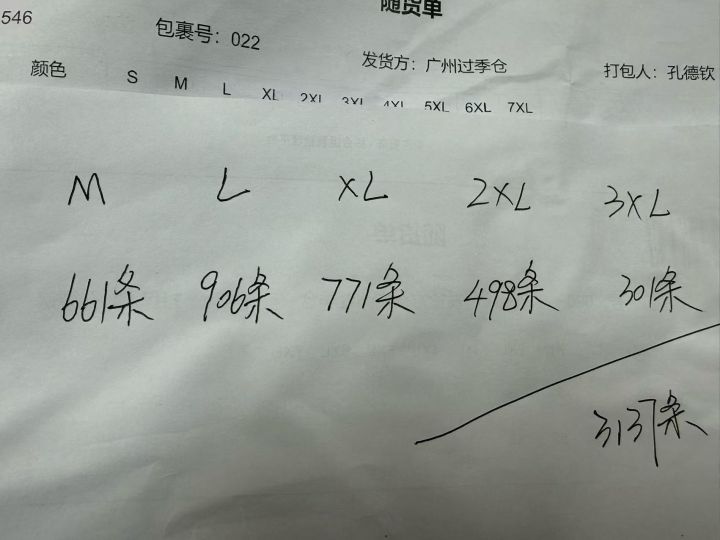 546
随货单
包裹号：022
发货方：广州过季仓
打包人：孔德钦
颜色 S M L XL 2XL 3XL 4XL 5XL 6XL 7XL
M L XL 2XL 3XL
661条 906条 771条 498条 301条
3137条